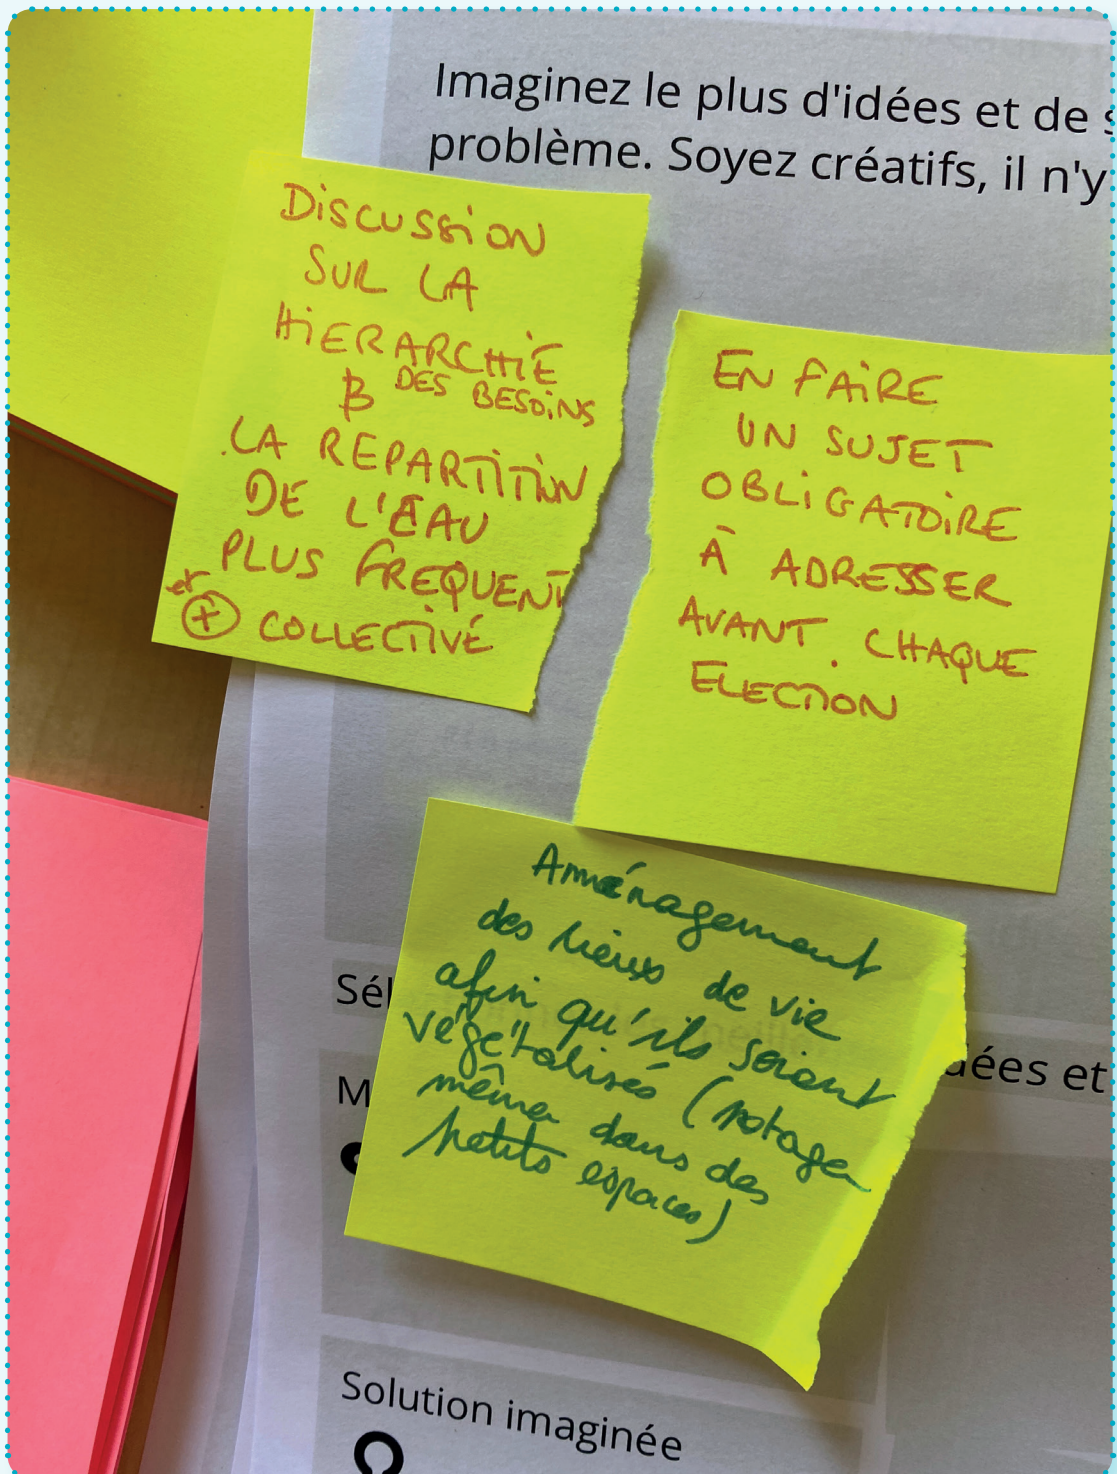 Imaginez le plus d'idées et de
problème. Soyez créatifs, il n'y
DISCUSSION
SUR LA
HIERARCHIE
DES BESOINS
LA REPARTITION
DE L'EAU
PLUS FREQUENT
et
+ COLLECTIVÉ
EN FAIRE
UN SUJET
OBLIGATOIRE
À ADRESSER
AVANT. CHAQUE
ELECTION
Aménagement
des lieux de vie
afin qu'ils soient
végétalisés (potager
même dans des
petits espaces)
Sél
idées et
M
Solution imaginée